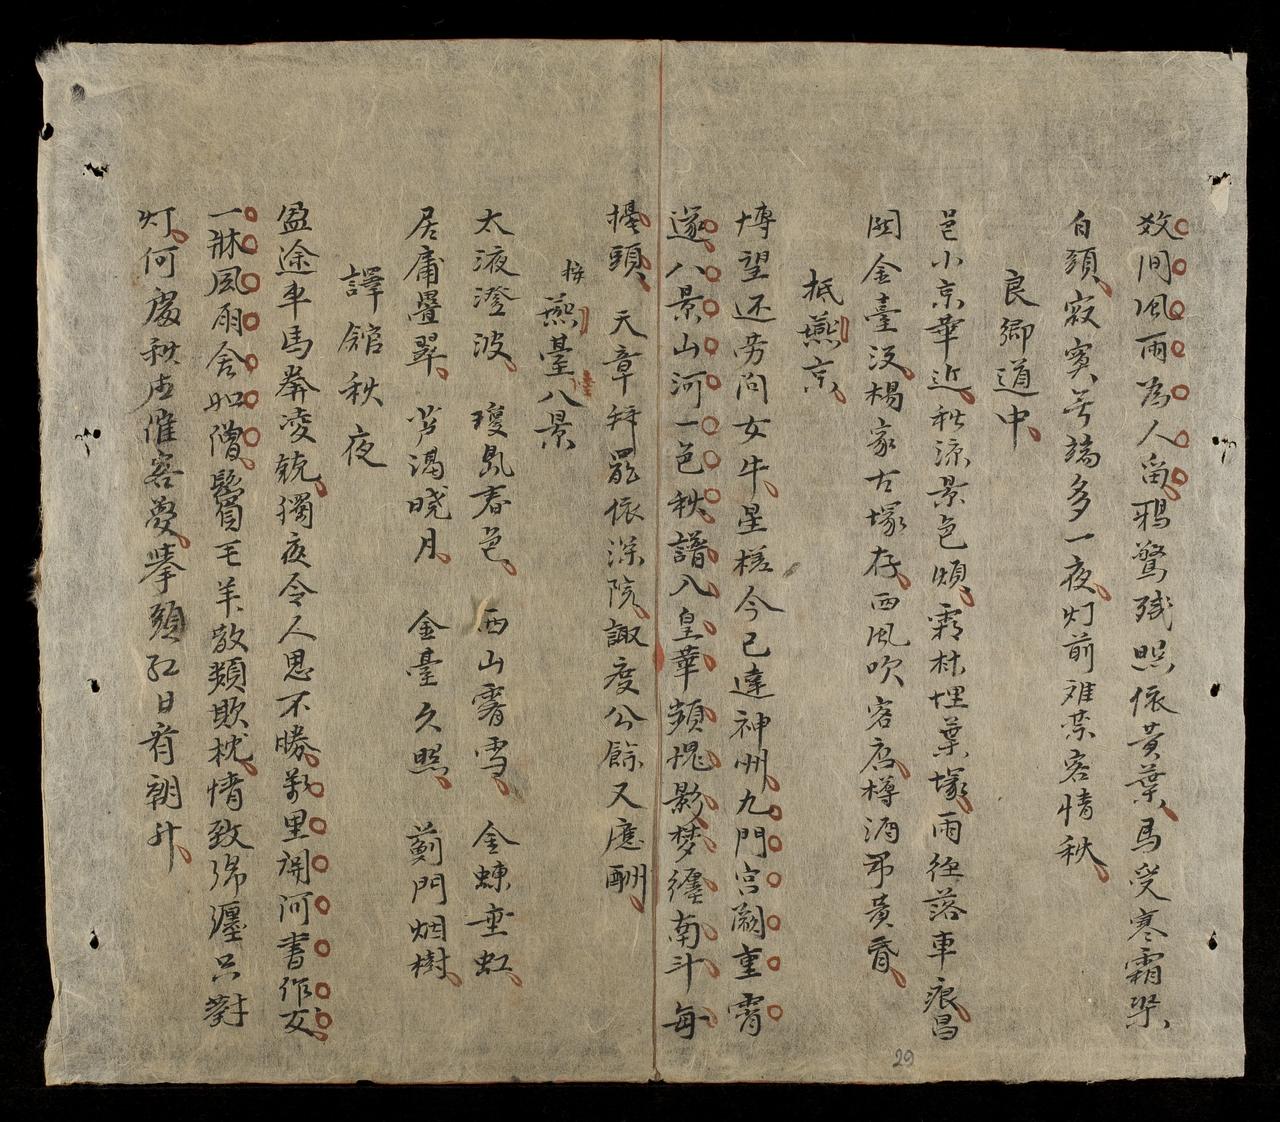 效間風雨為人留鴉驚殘照依黃葉馬受寒霜染
白頭寂寞無端多一夜灯前难禁客情秋
良鄉道中
邑小京華近秋凉景色煩霜林埋葉塚雨徑落車痕昌
國金臺沒楊家古塚存西風吹客店樽酒弔黃昏
抵燕京
博望还劳问女牛星槎今已達神州九門宮闕重霄
邃八景山河一色秋譜入皇華頻愧影梦纏南斗每
擡頭天章拜罷依深院諏度公餘又應酬
燕臺八景
太液澄波 瓊島春色 西山霽雪 金蝀垂虹
居庸疊翠 芦溝晓月 金臺夕照 薊門烟樹
譯館秋夜
盈途車馬奔凌兢獨夜令人思不勝萬里關河書作友
一牀風雨舍如僧鬢毛羊敬類欺枕情致歸瀍只對
灯何處秋声催客夢擎頭红日看朝升
29